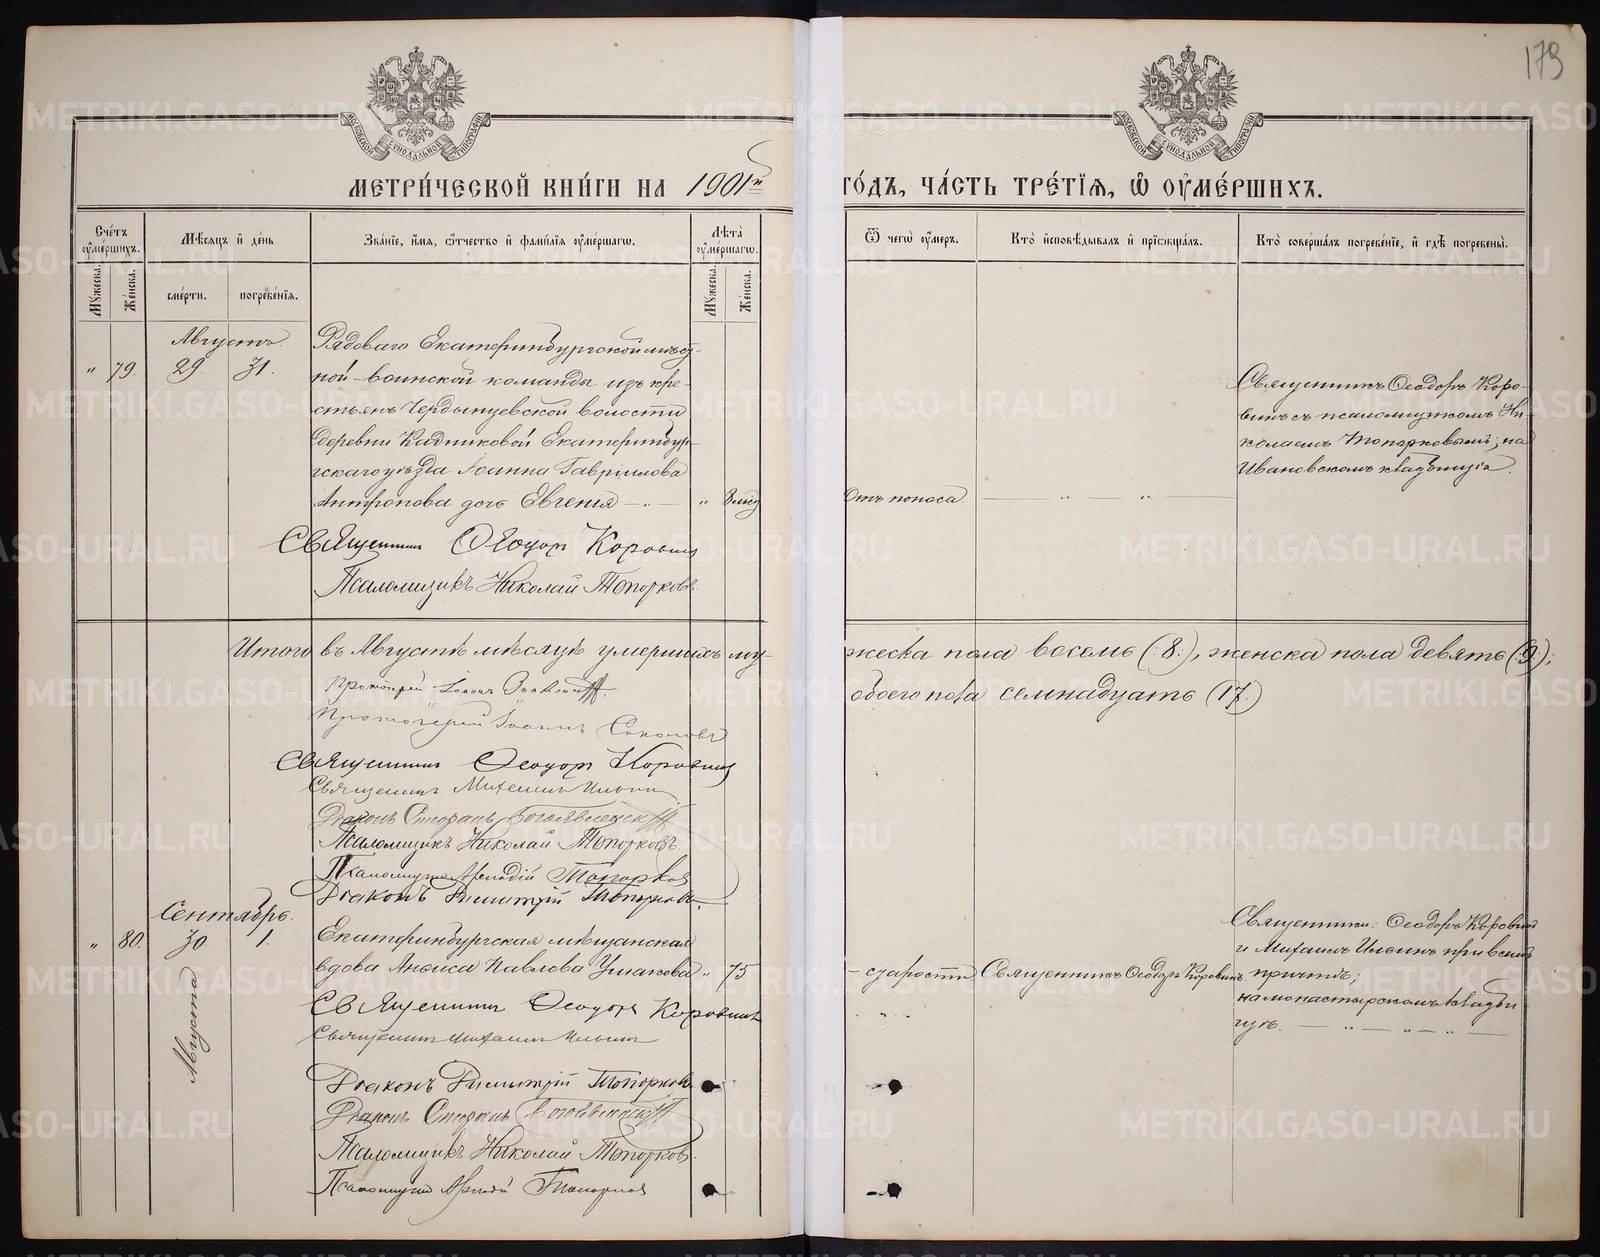 179
МОСКОВСКОЙ СУНОДАЛЬНОЙ ТИПОГРАФІИ
МОСКОВСКОЙ СУНОДАЛЬНОЙ ТИПОГРАФІИ
МЕТРИ́ЧЕСКОЙ КНИ́ГИ НА 1901й
ГО́ДЪ, ЧА́СТЬ ТРЕ́ТІѦ, Ѡ҆ ОУ҆МЕ́РШИХЪ.
Сче́тъ оу҆ме́ршихъ.
Мѣ́сяцъ и҆ де́нь
Зва́нїе, и҆́мѧ, ѻ҆́тчество и҆ фами́лїѧ оу҆ме́ршагѡ.
Лѣ́та оу҆ме́ршагѡ.
Ѿ чегѡ̀ оу҆́меръ.
Кто̀ и҆сповѣ́дывалъ и҆ прїѡбща́лъ.
Кто̀ соверша́лъ погребе́нїе, и҆ гдѣ̀ погребены̀.
Мꙋ́жеска.
Же́нска.
сме́рти.
погребе́нїѧ.
Мꙋ́жеска.
Же́нска.
Августъ.
" 79. 29 31.
Рядоваго Екатеринбургской мѣст-
ной-воинской команды изъ кре-
стьянъ Чердынцевской волости
деревни Кадниковой Екатеринбур-
гскаго уѣзда Іоанна Гавріилова
Антропова дочь Евгенія — " —
" 8 мѣс
Отъ поноса.
— " — " —
Священникъ Ѳеодоръ Коро-
винъ съ псаломщикомъ Ни-
колаемъ Топорковымъ; на
Ивановскомъ кладбищѣ.
Священникъ Ѳеодоръ Коровинъ
Псаломщикъ Николай Топорковъ.
Итого въ Августѣ мѣсяцѣ умершихъ му-
жеска пола восемь (:8:), женска пола девять (:9:);
обоего пола семнадцать (17.)
Протоіерей Іоаннъ
Протоіерей Іоаннъ Соколовъ
Священникъ Ѳеодоръ Коровинъ
Священникъ Михаилъ Ильинъ
Діаконъ Стефанъ Богоявленскій
Псаломщикъ Николай Топорковъ
Псаломщикъ Топорковъ
Діаконъ Димитрій Топорковъ.
Сентябрь.
" 80. 30 1.
Августа
Екатеринбургская мѣщанская
вдова Анѳиса Павлова Ушакова
" 75
- старости
Священникъ Ѳеодоръ Коровинъ
Священники: Ѳеодоръ Коровинъ
и Михаилъ Ильинъ при всемъ
причтѣ;
на монастырскомъ кладби
щѣ. — " — " — " —
Священникъ Ѳеодоръ Коровинъ
Священникъ Михаилъ Ильинъ
Діаконъ Димитрій Топорковъ
Діаконъ Стефанъ Богоявленскій
Псаломщикъ Николай Топорковъ.
Псаломщикъ Топорковъ
METRIKI.GASO-URAL.RU